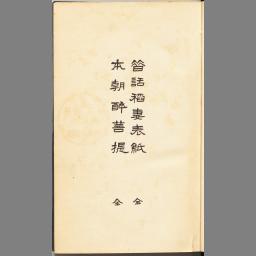 昔話稲妻表紙 全
本朝酔菩提 全